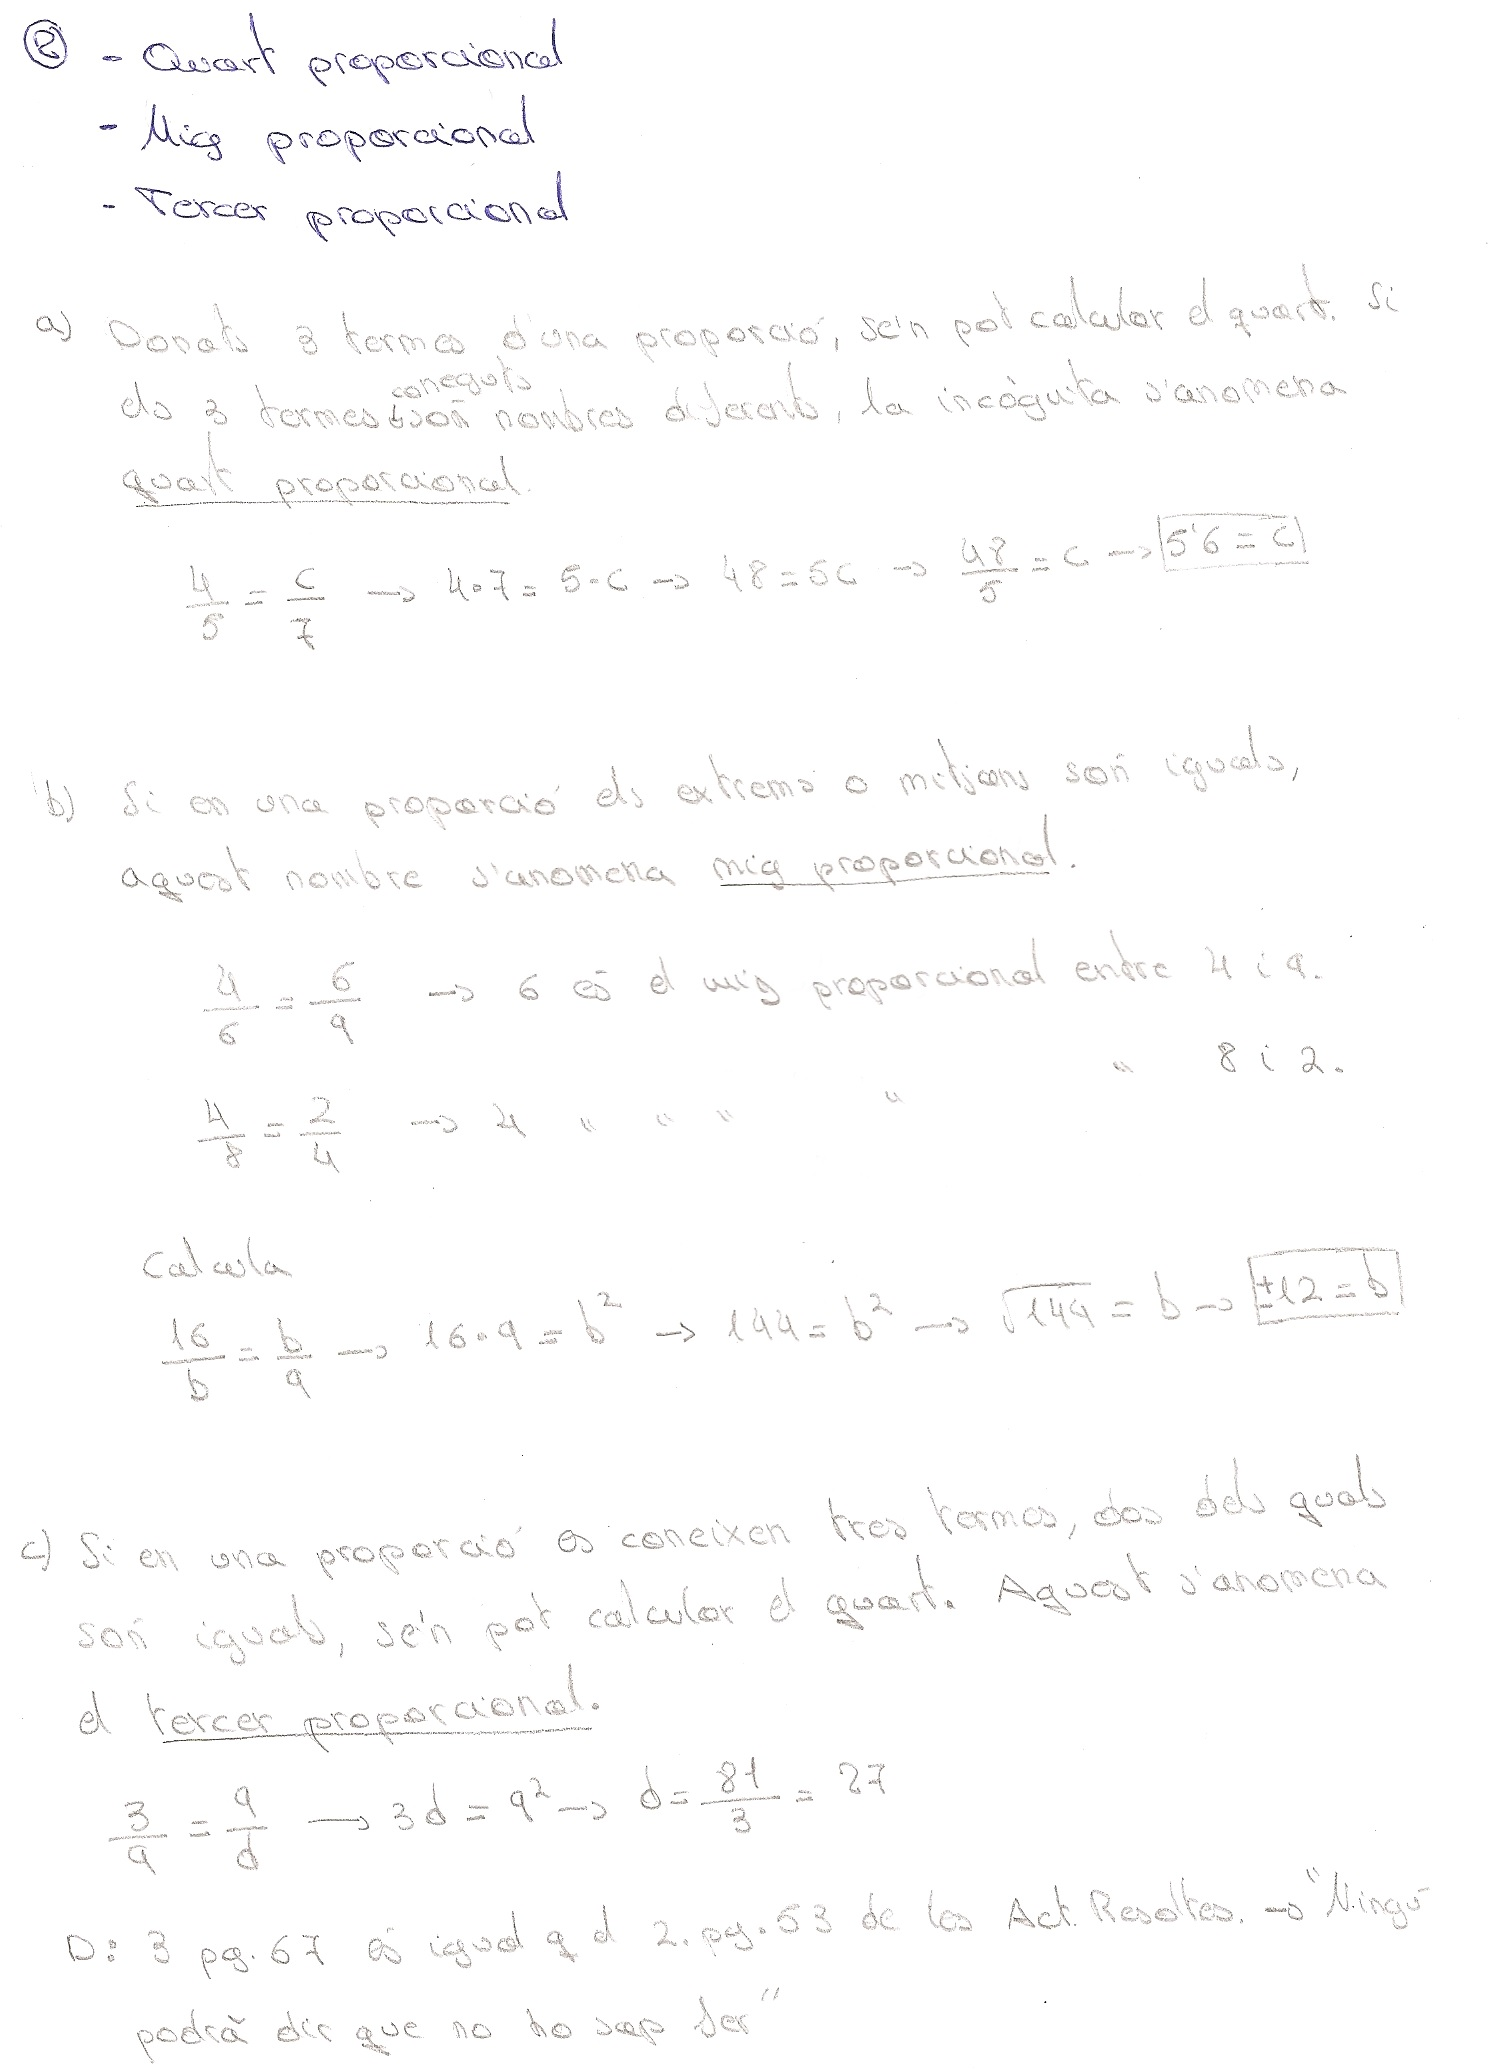 ② - Quart proporcional
- Mig proporcional
- Tercer proporcional
a) Donats 3 termes d'una proporció, se'n pot calcular el quart. Si
els 3 termes coneguts són nombres diferents, la incògnita s'anomena
quart proporcional.
4/5 = c/7 → 4·7 = 5·c → 48 = 5c → 48/5 = c → 5'6 = c
b) Si en una proporció els extrems o mitjans són iguals,
aquest nombre s'anomena mig proporcional.
4/6 = 6/9 → 6 és el mig proporcional entre 4 i 9.
4/8 = 2/4 → 4 " " " " " 8 i 2.
Calcula
16/b = b/9 → 16·9 = b² → 144 = b² → √144 = b → ±12 = b
c) Si en una proporció es coneixen tres termes, dos dels quals
són iguals, se'n pot calcular el quart. Aquest s'anomena
el tercer proporcional.
3/9 = 9/d → 3d = 9² → d = 81/3 = 27
D: 3 pg. 67 és igual q el 2. pg. 53 de les Act. Resoltes. → "Ningú
podrà dir que no ho sap fer"